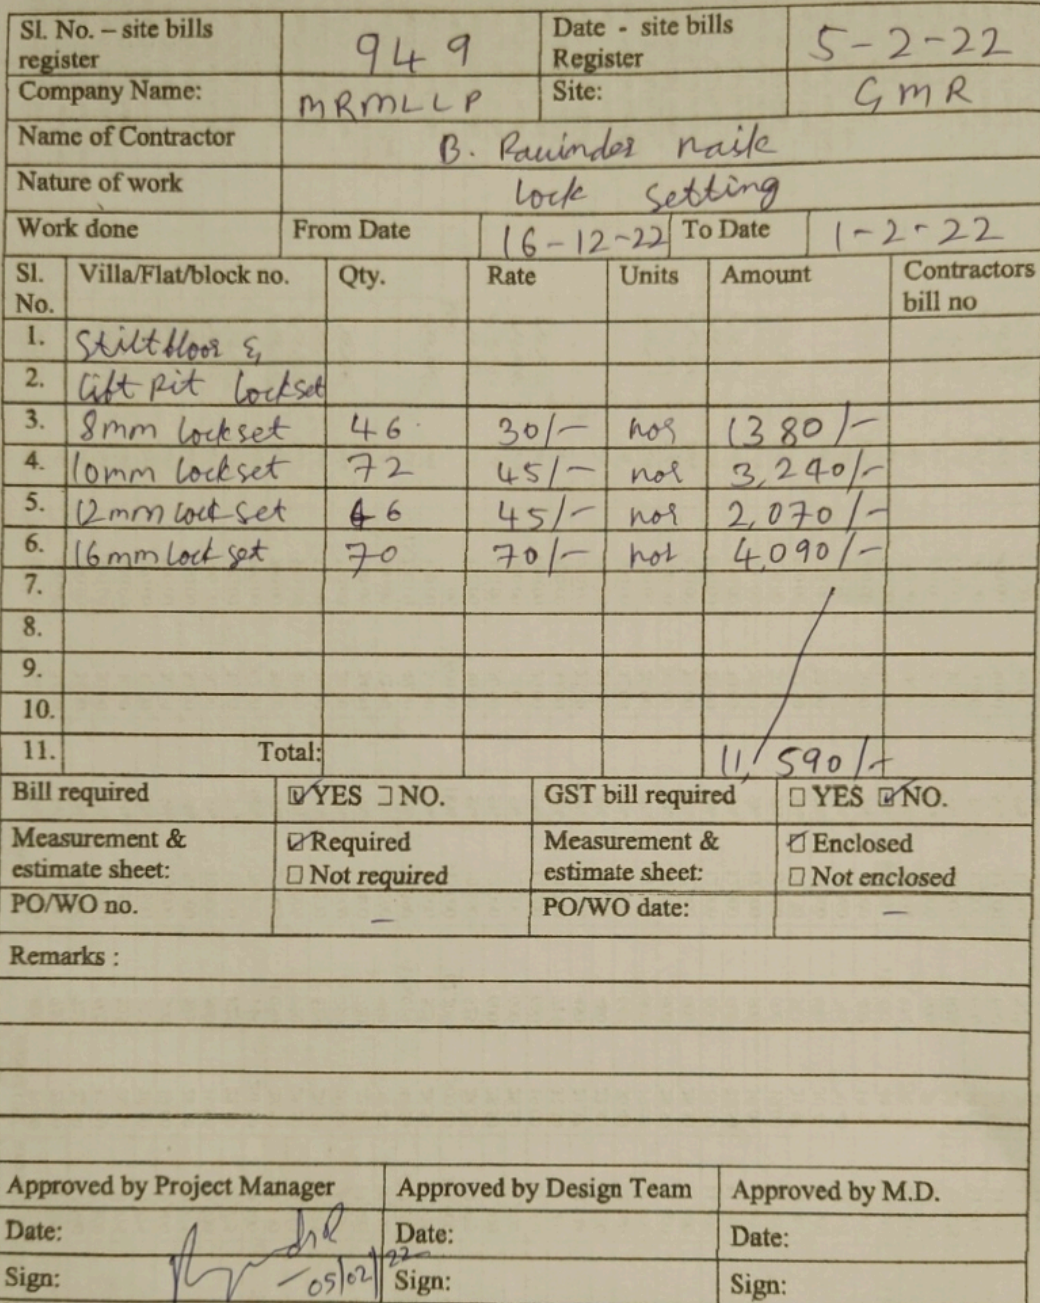 Sl. No. – site bills register 949 Date - site bills Register 5-2-22
Company Name: MRMLLP Site: GMR
Name of Contractor B. Ravinder naik
Nature of work lock setting
Work done From Date 16-12-22 To Date 1-2-22
Sl. No. Villa/Flat/block no. Qty. Rate Units Amount Contractors bill no
1. Stilt floor &
2. Lift Pit Lockset
3. 8mm Lockset 46 30/- nos 1380/-
4. 10mm Lockset 72 45/- nos 3,240/-
5. 12mm Lock set 46 45/- nos 2,070/-
6. 16mm Lock set 70 70/- nos 4,090/-
7.
8.
9.
10.
11. Total: 11,590/-
Bill required ☑ YES ☐ NO. GST bill required ☐ YES ☑ NO.
Measurement & estimate sheet: ☑ Required ☐ Not required Measurement & estimate sheet: ☑ Enclosed ☐ Not enclosed
PO/WO no. – PO/WO date: –
Remarks :
Approved by Project Manager Approved by Design Team Approved by M.D.
Date: Date: Date:
Sign: 05/02/22 Sign: Sign: